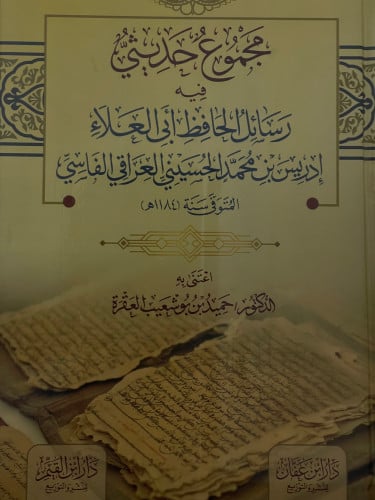 مجموع حديثي
فيه
رسائل الحافظ أبي العلاء
إدريس بن محمد الحسيني العراقي الفاسي
المتوفى سنة (١١٨٤هـ)
اعتنى به
الدكتور/ حميد بن بوشعيب العقرة
دار ابن عفان
للنشر والتوزيع
دار ابن القيم
للنشر والتوزيع